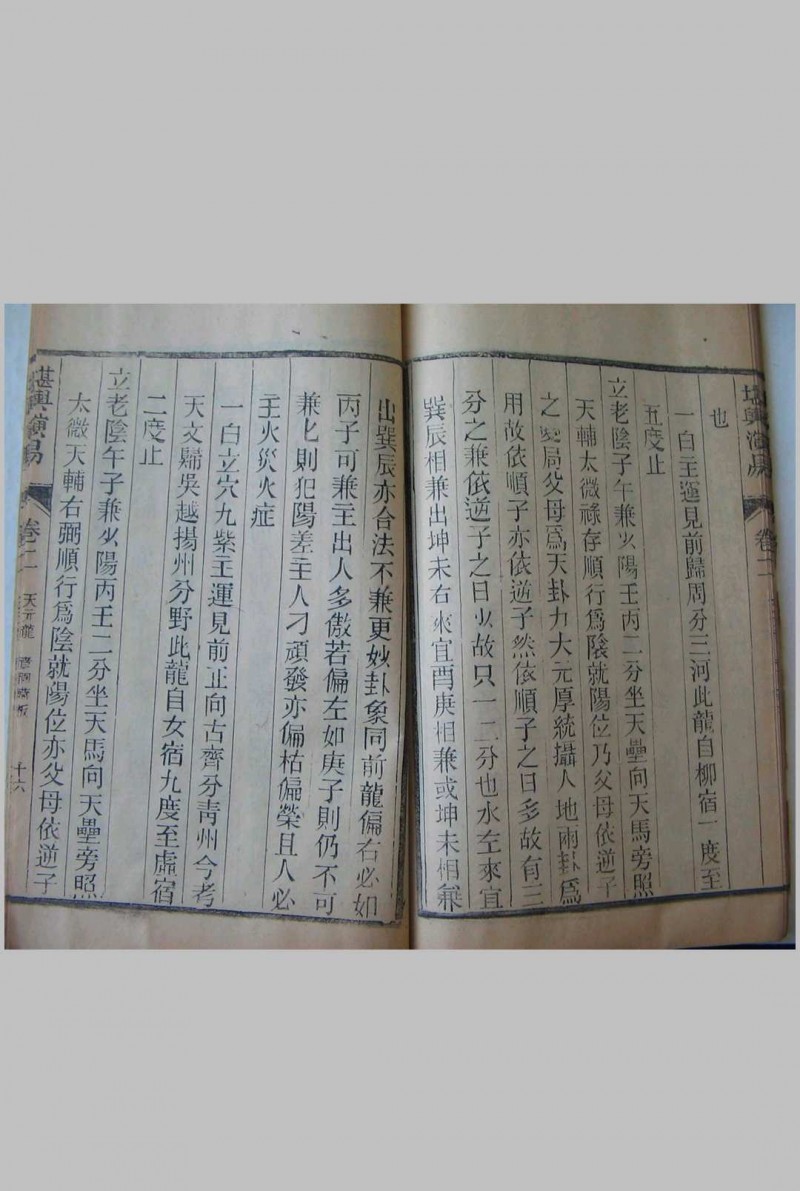 也
一白主運見前歸周分三河此龍自柳宿一度至
五度止
立老陰子午兼少陽壬丙二分坐天壘向天馬旁照
天輔太微祿存順行爲陰就陽位乃父母依逆子
之局父母爲天卦力大元厚統攝人地兩卦爲
用故依順子亦依逆子然依順子之日多故有三
分之兼依逆子之日少故只一二分也水左來宜
巽辰相兼出坤未右來宜酉庚相兼或坤未相兼
出巽辰亦合法不兼更妙卦象同前龍偏右必如
丙子可兼主出人多傲若偏左如庚子則仍不可
兼也則犯陽差主人刁頑發亦偏枯偏榮且人必
主火災火症
一白立穴九紫主運見前正向古齊分青州今考
天文歸吳越揚州分野此龍自女宿九度至虛宿
二度止
立老陰午子兼少陽丙壬二分坐天馬向天壘旁照
太微天輔右弼順行爲陰就陽位亦父母依逆子
堪輿演易
卷二
天元龍
十六
堪輿演易
卷二